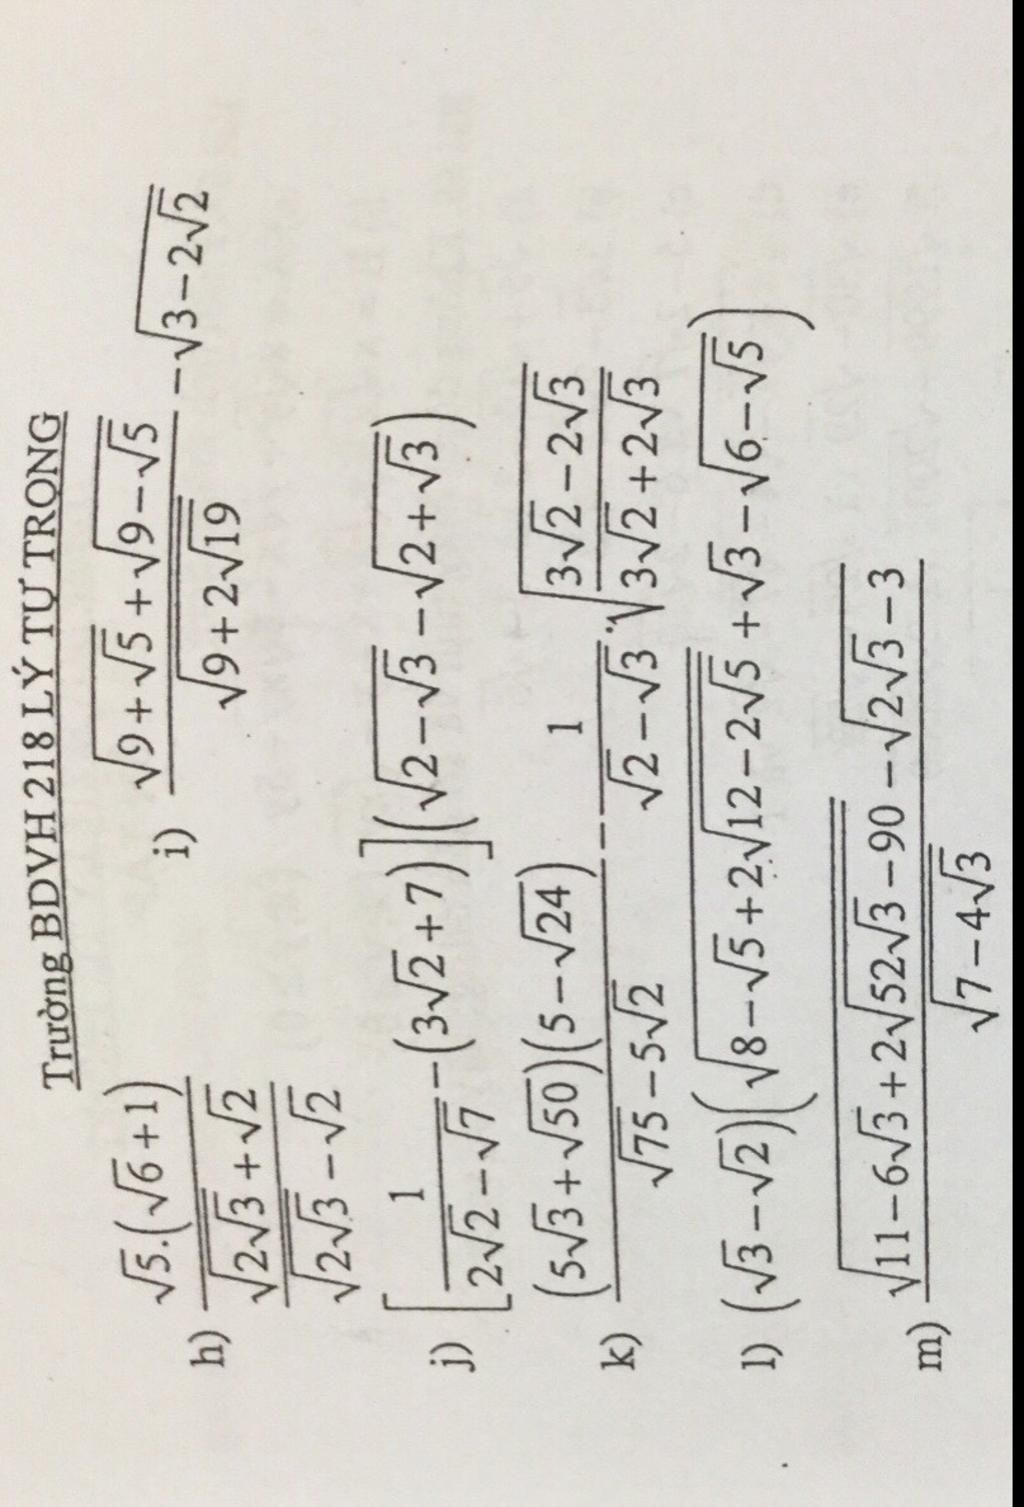 Trường BDVH 218 LÝ TỰ TRỌNG
h) √5.(√6+1) / (√(2√3+√2) / √(2√3−√2))
i) (√(9+√5)+√(9−√5)) / √(9+2√19) − √(3−2√2)
j) [1/(2√2−√7) − (3√2+7)](√(2−√3) − √(2+√3))
k) (5√3+√50)(5−√24) / (√75−5√2) − 1/(√2−√3) : √((3√2−2√3)/(3√2+2√3))
l) (√3−√2)(√(8−√5+2√(12−2√5)) + √3 − √(6−√5))
m) (√(11−6√3+2√(52√3−90)) − √(2√3−3)) / √(7−4√3)